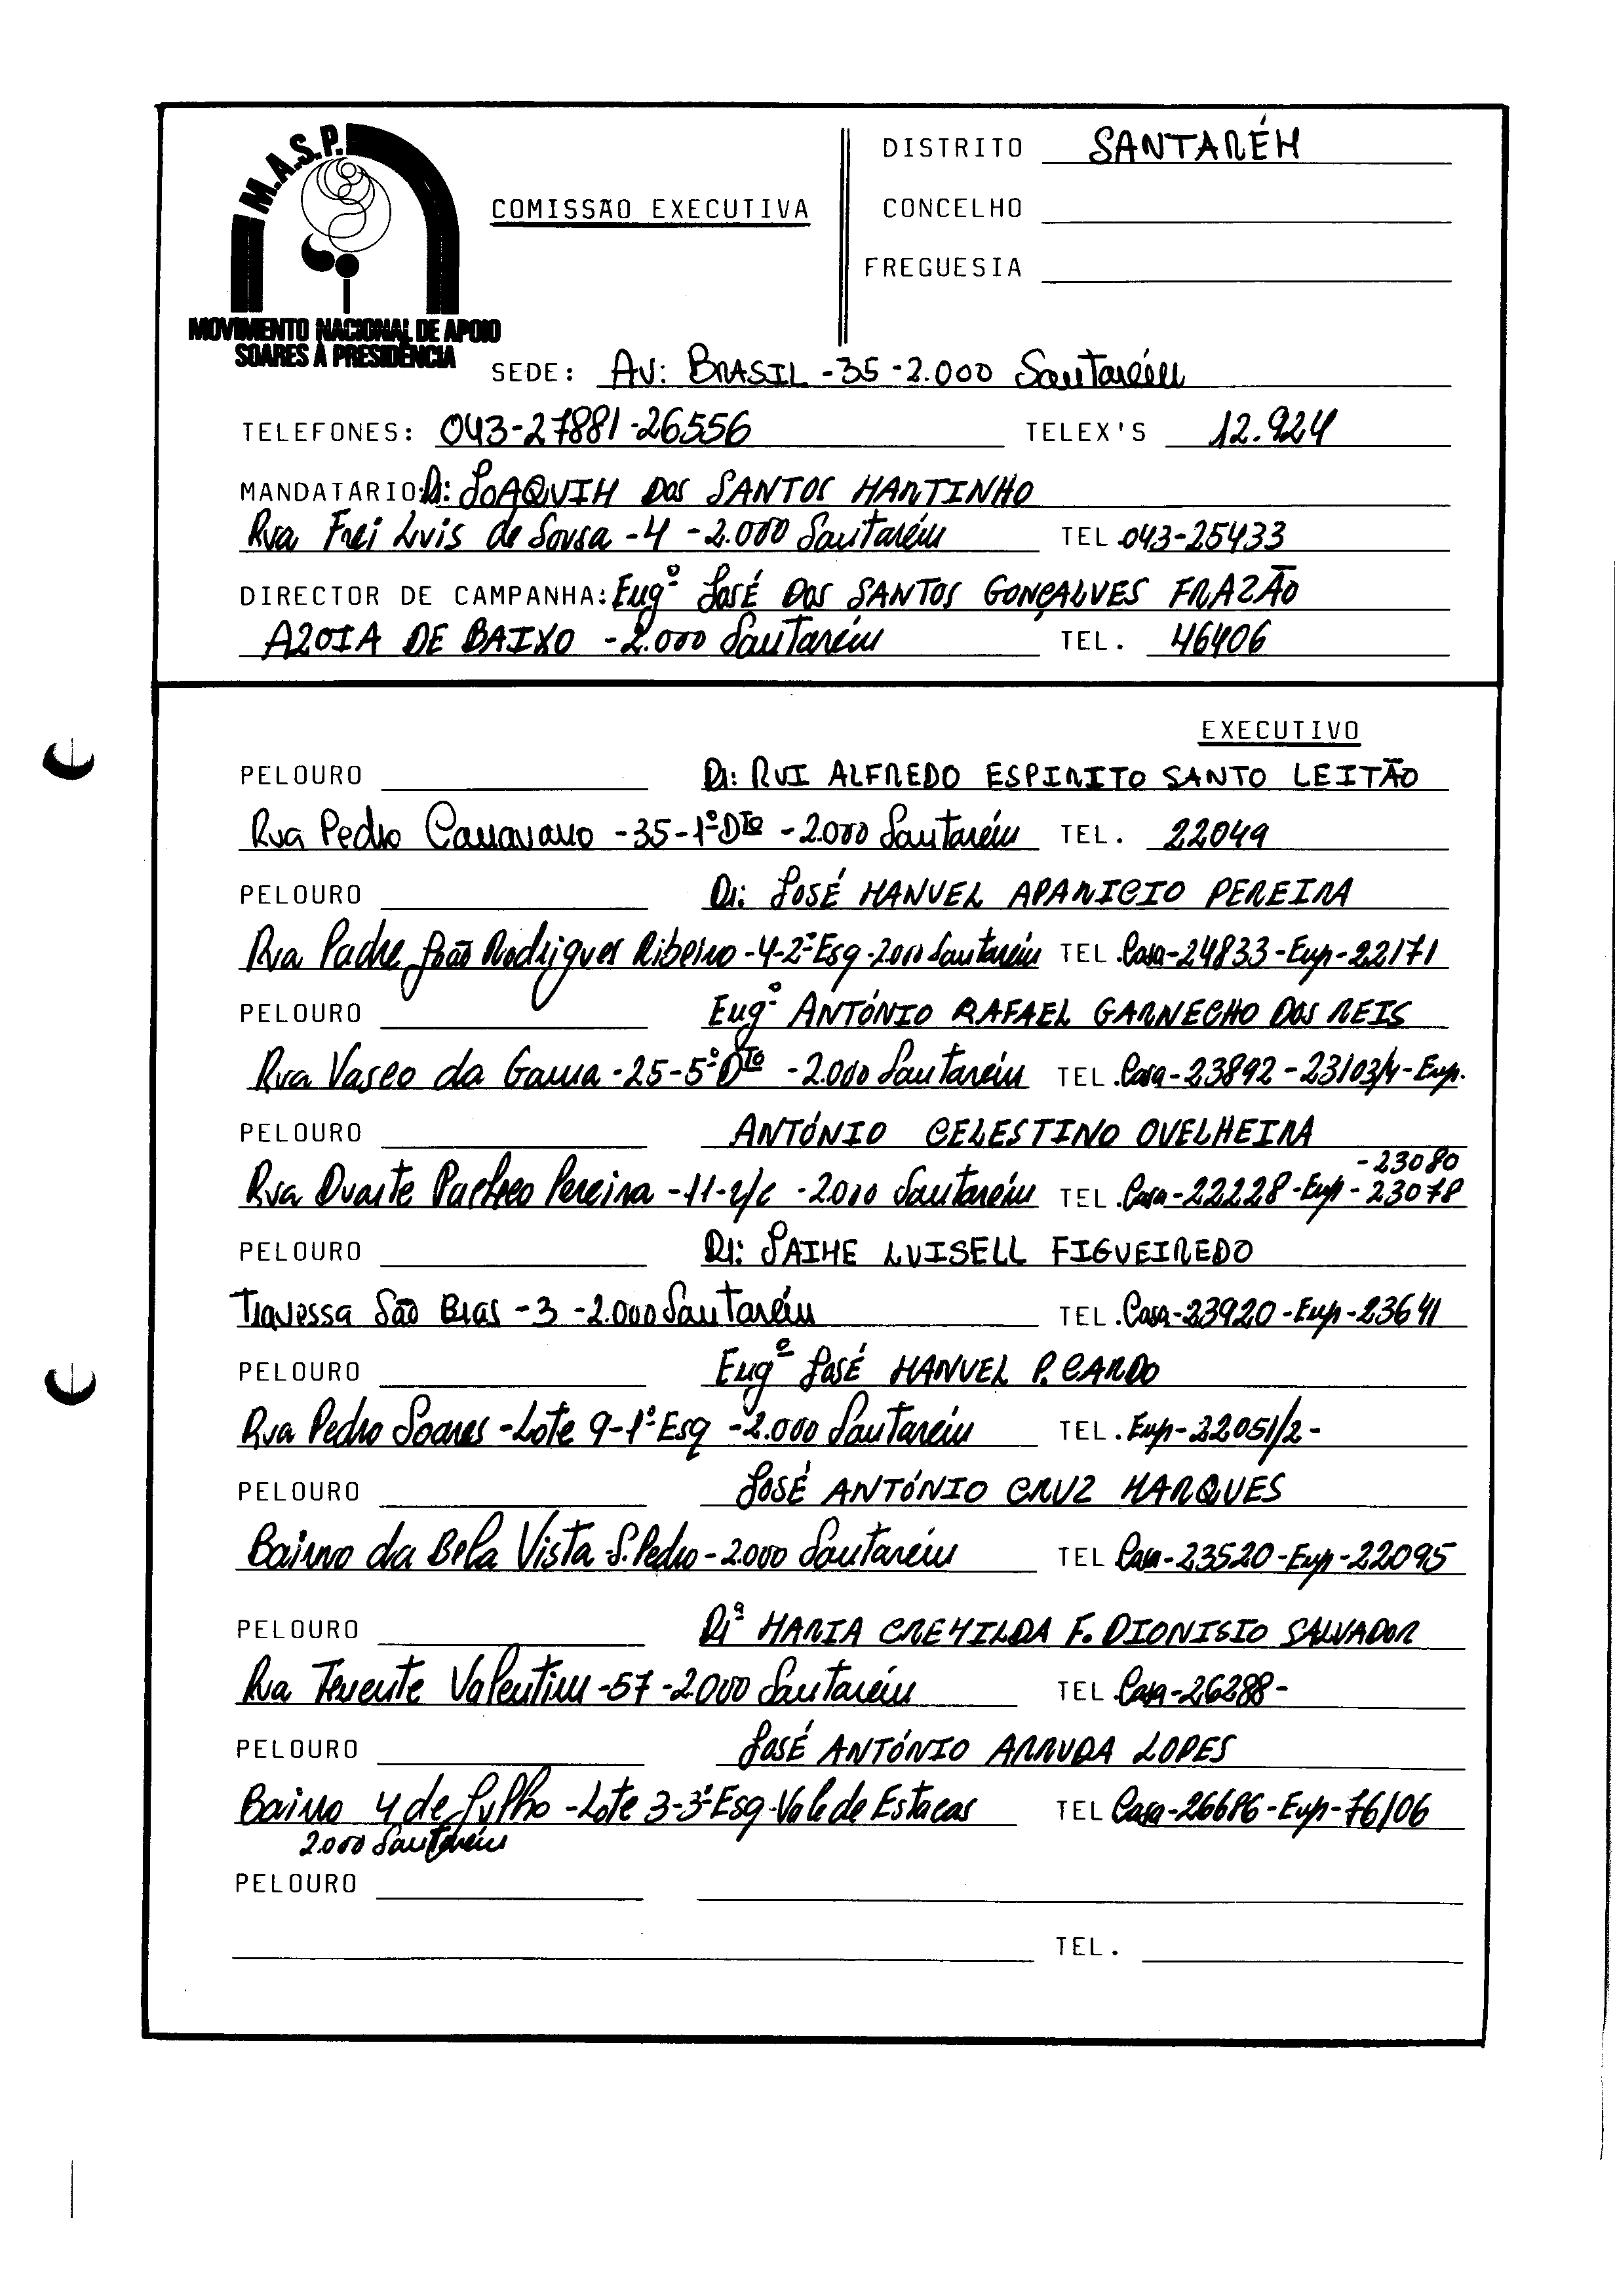 M.A.S.P.
MOVIMENTO NACIONAL DE APOIO
SOARES À PRESIDÊNCIA
COMISSÃO EXECUTIVA
DISTRITO SANTARÉM
CONCELHO
FREGUESIA
SEDE: AV: BRASIL -35 -2.000 Santarém
TELEFONES: 043-27881-26556 TELEX'S 12.924
MANDATÁRIO: Dr: JOAQUIM DOS SANTOS MARTINHO
Rua Frei Luis de Sousa -4 -2.000 Santarém TEL.043-25433
DIRECTOR DE CAMPANHA: Engº JOSÉ DOS SANTOS GONÇALVES FRAZÃO
AZOIA DE BAIXO -2.000 Santarém TEL. 46406
EXECUTIVO
PELOURO Dr: RUI ALFREDO ESPIRITO SANTO LEITÃO
Rua Pedro Canavarro -35-1º Dto -2.000 Santarém TEL. 22049
PELOURO Dr: JOSÉ MANUEL APARICIO PEREIRA
Rua Padre João Rodrigues Ribeiro -4-2º Esq -2.000 Santarém TEL.Casa-24833-Emp-22171
PELOURO Engº ANTÓNIO RAFAEL GARRECHO DOS REIS
Rua Vasco da Gama -25-5º Dto -2.000 Santarém TEL.Casa-23892-23103/4-Emp.
PELOURO ANTÓNIO CELESTINO OVELHEIRA
-23080
Rua Duarte Pacheco Pereira -11-r/c -2.000 Santarém TEL.Casa-22228-Emp-23078
PELOURO Dr: JAIME LUISELL FIGUEIREDO
Travessa São Bras -3 -2.000 Santarém TEL.Casa-23920-Emp-23641
PELOURO Engº JOSÉ MANUEL P. CARDO
Rua Pedro Soares -Lote 9-1º Esq -2.000 Santarém TEL. Emp-22051/2-
PELOURO JOSÉ ANTÓNIO CRUZ MARQUES
Bairro da Bela Vista -S. Pedro -2.000 Santarém TEL Casa-23520-Emp-22095
PELOURO Drª MARIA CREMILDA F. DIONISIO SALVADOR
Rua Tenente Valentim -57 -2.000 Santarém TEL.Casa-26288-
PELOURO JOSÉ ANTÓNIO ARRUDA LOPES
Bairro 4 de Julho -Lote 3-3º Esq -Vale de Estacas TEL Casa-26686-Emp-76106
2.000 Santarém
PELOURO
TEL.